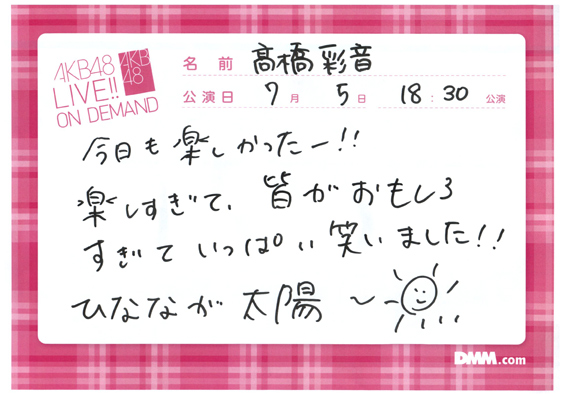 AKB48
LIVE!!
ON DEMAND
AKB
48
名前 髙橋彩音
公演日 7月 5日 18:30 公演
今日も楽しかったー!!
楽しすぎて、皆がおもしろ
すぎていっぱい笑いました!!
ひななが太陽〜
DMM.com